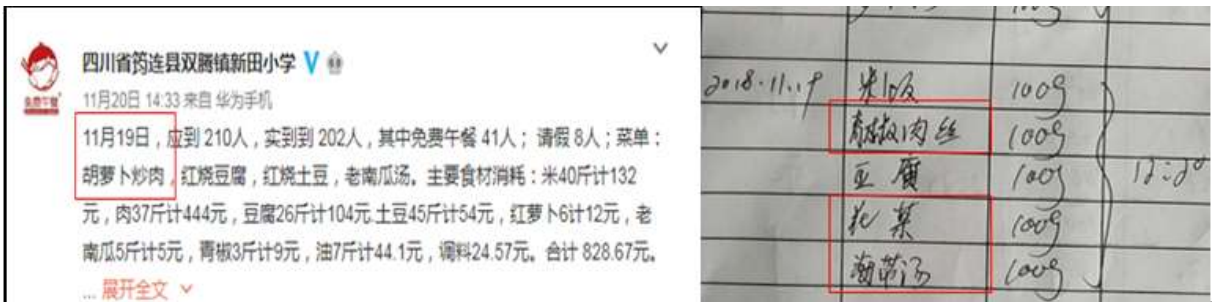 四川省筠连县双腾镇新田小学 V
免费午餐
11月20日 14:33 来自 华为手机
11月19日，应到 210人，实到到 202人，其中免费午餐 41人；请假 8人；菜单：
胡萝卜炒肉，红烧豆腐，红烧土豆，老南瓜汤。主要食材消耗：米40斤计132
元，肉37斤计444元，豆腐26斤计104元.土豆45斤计54元，红萝卜6计12元，老
南瓜5斤计5元，青椒3斤计9元，油7斤计44.1元，调料24.57元。合计 828.67元。
... 展开全文
100g
2018.11.19 米饭 100g
青椒肉丝 100g
豆腐 100g 12:20
花菜 100g
海带汤 100g